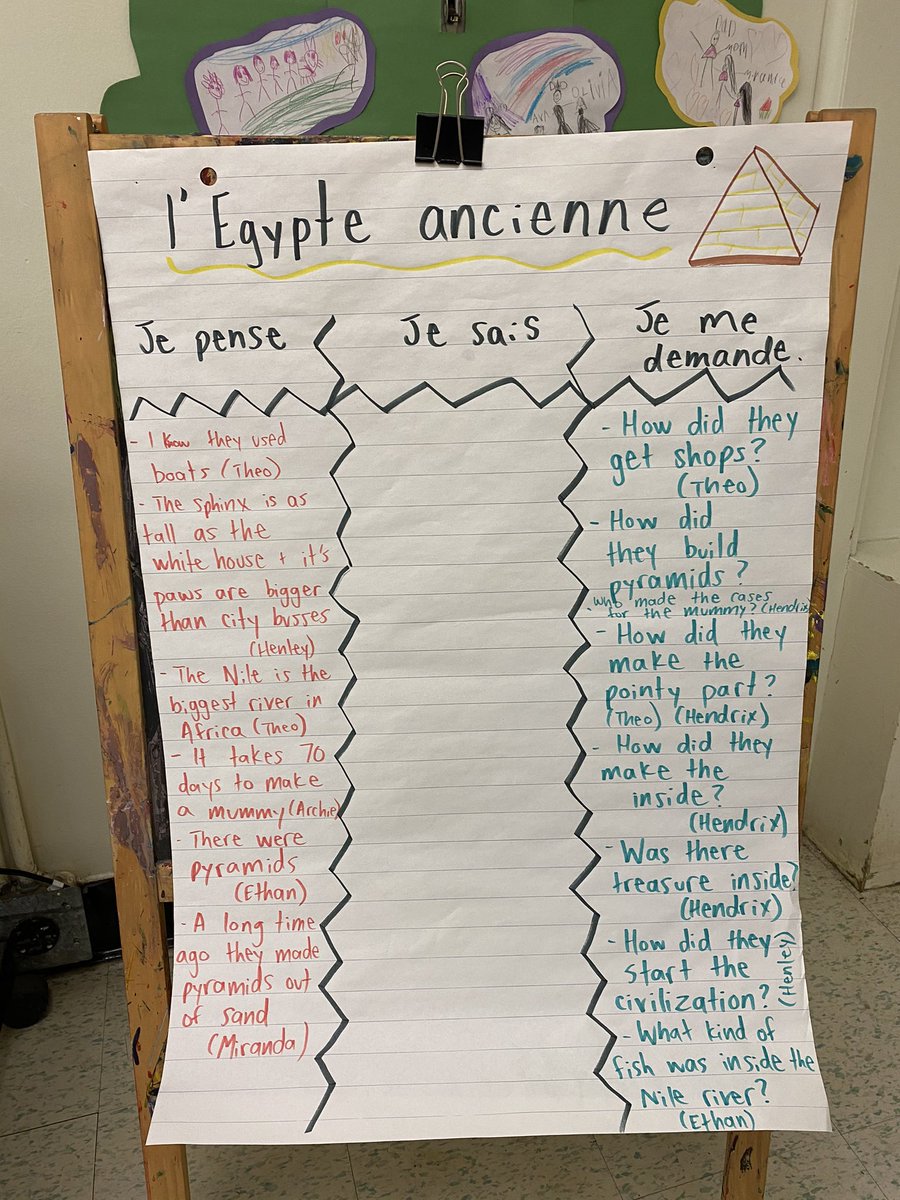 DAD
mom
DAD
OLIVIA
AVA
l'Egypte ancienne
Je pense
- I know they used
boats (Theo)
- The sphinx is as
tall as the
white house + it's
paws are bigger
than city busses
(Henley)
- The Nile is the
biggest river in
Africa (Theo)
- It takes 70
days to make
a mummy (Archie)
- There were
pyramids
(Ethan)
- A long time
ago they made
pyramids out
of sand
(Miranda)
Je sais
Je me
demande.
- How did they
get shops?
(Theo)
- How did
they build
pyramids?
- who made the cases
for the mummy? (Hendrix)
- How did they
make the
pointy part?
(Theo) (Hendrix)
- How did they
make the
inside?
(Hendrix)
- Was there
treasure inside?
(Hendrix)
- How did they
start the
civilization? (Henley)
- What kind of
fish was inside the
Nile river?
(Ethan)